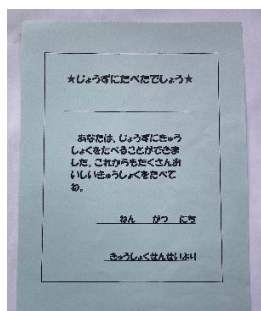 ★じょうずにたべたでしょう★
あなたは、じょうずにきゅう
しょくをたべることができま
した。これからもたくさんお
いしいきゅうしょくをたべて
ね。
ねん　がつ　にち
きゅうしょくせんせいより